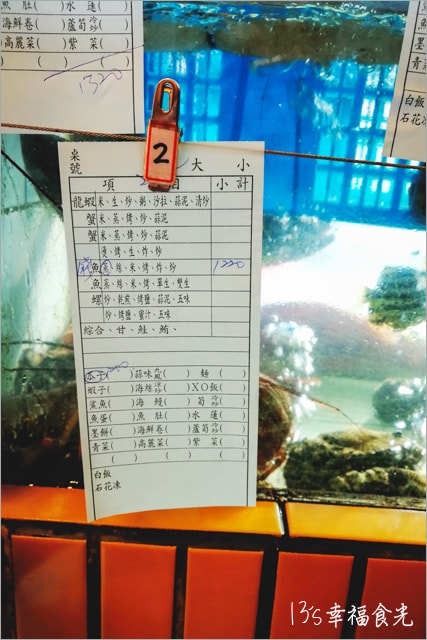 魚肚( )水蓮( )
海鮮卷( )蘆筍冷炒( )
高麗菜( )紫菜( )
( )
1320
白飯
石花凍
2
桌號 大 小
項 目 小計
龍蝦 米、生、炒、粥、沙拉、蒜泥、清炒
蟹 米、蒸、烤、炒、蒜泥
蟹 米、蒸、烤、炒、蒜泥
烤、生、炸、炒
魚 蒸、絲、米、烤、炸、炒 1220
魚 蒸、絲、米、烤、單生、雙生
螺 炒、乾煎、烤鹽、蒜泥、五味
炒、烤鹽、蜜汁、五味
綜合、甘、鮭、鮪、
瓜子( )蒜味 ( ) 麵 ( )
蝦子( )海絲涼炒( )XO飯( )
鯊魚( )海鰻( ) 筍 冷炒( )
魚蛋( )魚肚( )水蓮( )
墨餅( )海鮮卷( )蘆筍冷炒( )
青菜( )高麗菜( )紫菜( )
( ) ( ) ( )
白飯
石花凍
13's幸福食光